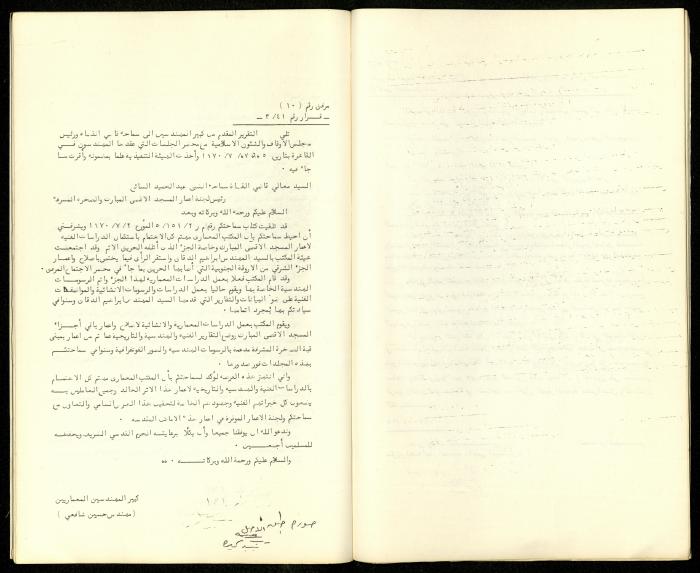 مرفق رقم ( ١٠ )
ـ قرار رقم ٣/٤١ ـ
تلي التقرير المقدم من كبير المهندسين الى سماحة قاضي القضاة ورئيس
مجلس الاوقاف والشئون الاسلامية من محضر الجلسات التي عقدها المهندسون في
القاهرة بتاريخ ٥ و٦ و٧/٧/١١٧٠ وأخذت الهيئة التنفيذية علما بمضمونه وأقرت ما
جاء فيه ٠
السيد معالي قاضي القضاة سماحة الشيخ عبد الحميد السائح
رئيس لجنة اعمار المسجد الاقصى المبارك والصخرة المشرفة
السلام عليكم ورحمة الله وبركاته وبعد
فقد تلقيت كتاب سماحتكم رقم م ر ٥/١٥١/٢ المؤرخ ١١٧٠/٧/٢ ويشرفني
أن احيط سماحتكم بأن المكتب المعماري مهتم كل الاهتمام باستكمال الدراسات الفنية
لاعمار المسجد الاقصى المبارك وخاصة الجزء الذي أتلفه الحريق الاثم وقد اجتمعت
هيئة المكتب بالسيد المهندس ابراهيم الدقاق واستقر الرأي فيما يختص باصلاح واعمار
الجزء الشرقي من الاروقة الجنوبية التي أصابها الحريق بما جاء في محضر الاجتماع المرفق٠
وقد قام المكتب فعلا بعمل الدراسات المعمارية لهذا الجزء واتم الرسومات
الهندسية الخاصة بها ويقوم حاليا بعمل الدراسات والرسومات الانشائية والمواصفات
الفنية على ضوء البيانات والتقارير التي قدمها السيد المهندس ابراهيم الدقاق وسنوافي
سيادتكم بها بمجرد اتمامها ٠
ويقوم المكتب بعمل الدراسات المعمارية والانشائية لاصلاح واعمار باقي أجزاء
المسجد الاقصى المبارك ووضع التقارير الفنية والهندسية والتاريخية عما تم من اعمار بمبنى
قبة الصخرة المشرفة مدعمة بالرسومات الهندسية والصور الفوتوغرافية وسنوافي سماحتكم
بهذه المجلدات فور صدورها ٠
واني انتهز هذه الفرصة لأؤكد لسماحتكم بأن المكتب المعماري مهتم كل الاهتمام
بالدراسات الفنية والهندسية والتاريخية لاعمار هذا الاثر الخالد وجميع العاملين به
يضعون كل خبراتهم الفنية وجهودهم الخاصة لتحقيق هذا الغرض السامي والتعاون مع
سماحتكم ولجنة الاعمار الموقرة في اعمار هذه الاماكن المقدسة ٠
وندعو الله ان يوفقنا جميعا وأن يكلأ برعايته الحرم القدسي الشريف ويحفظه
للمسلمين أجمعين ٠
والسلام عليكم ورحمة الله وبركاته ٠ ٥٥
كبير المهندسين المعماريين
( مهندس حسين شافعي )
صورة طبق الأصل